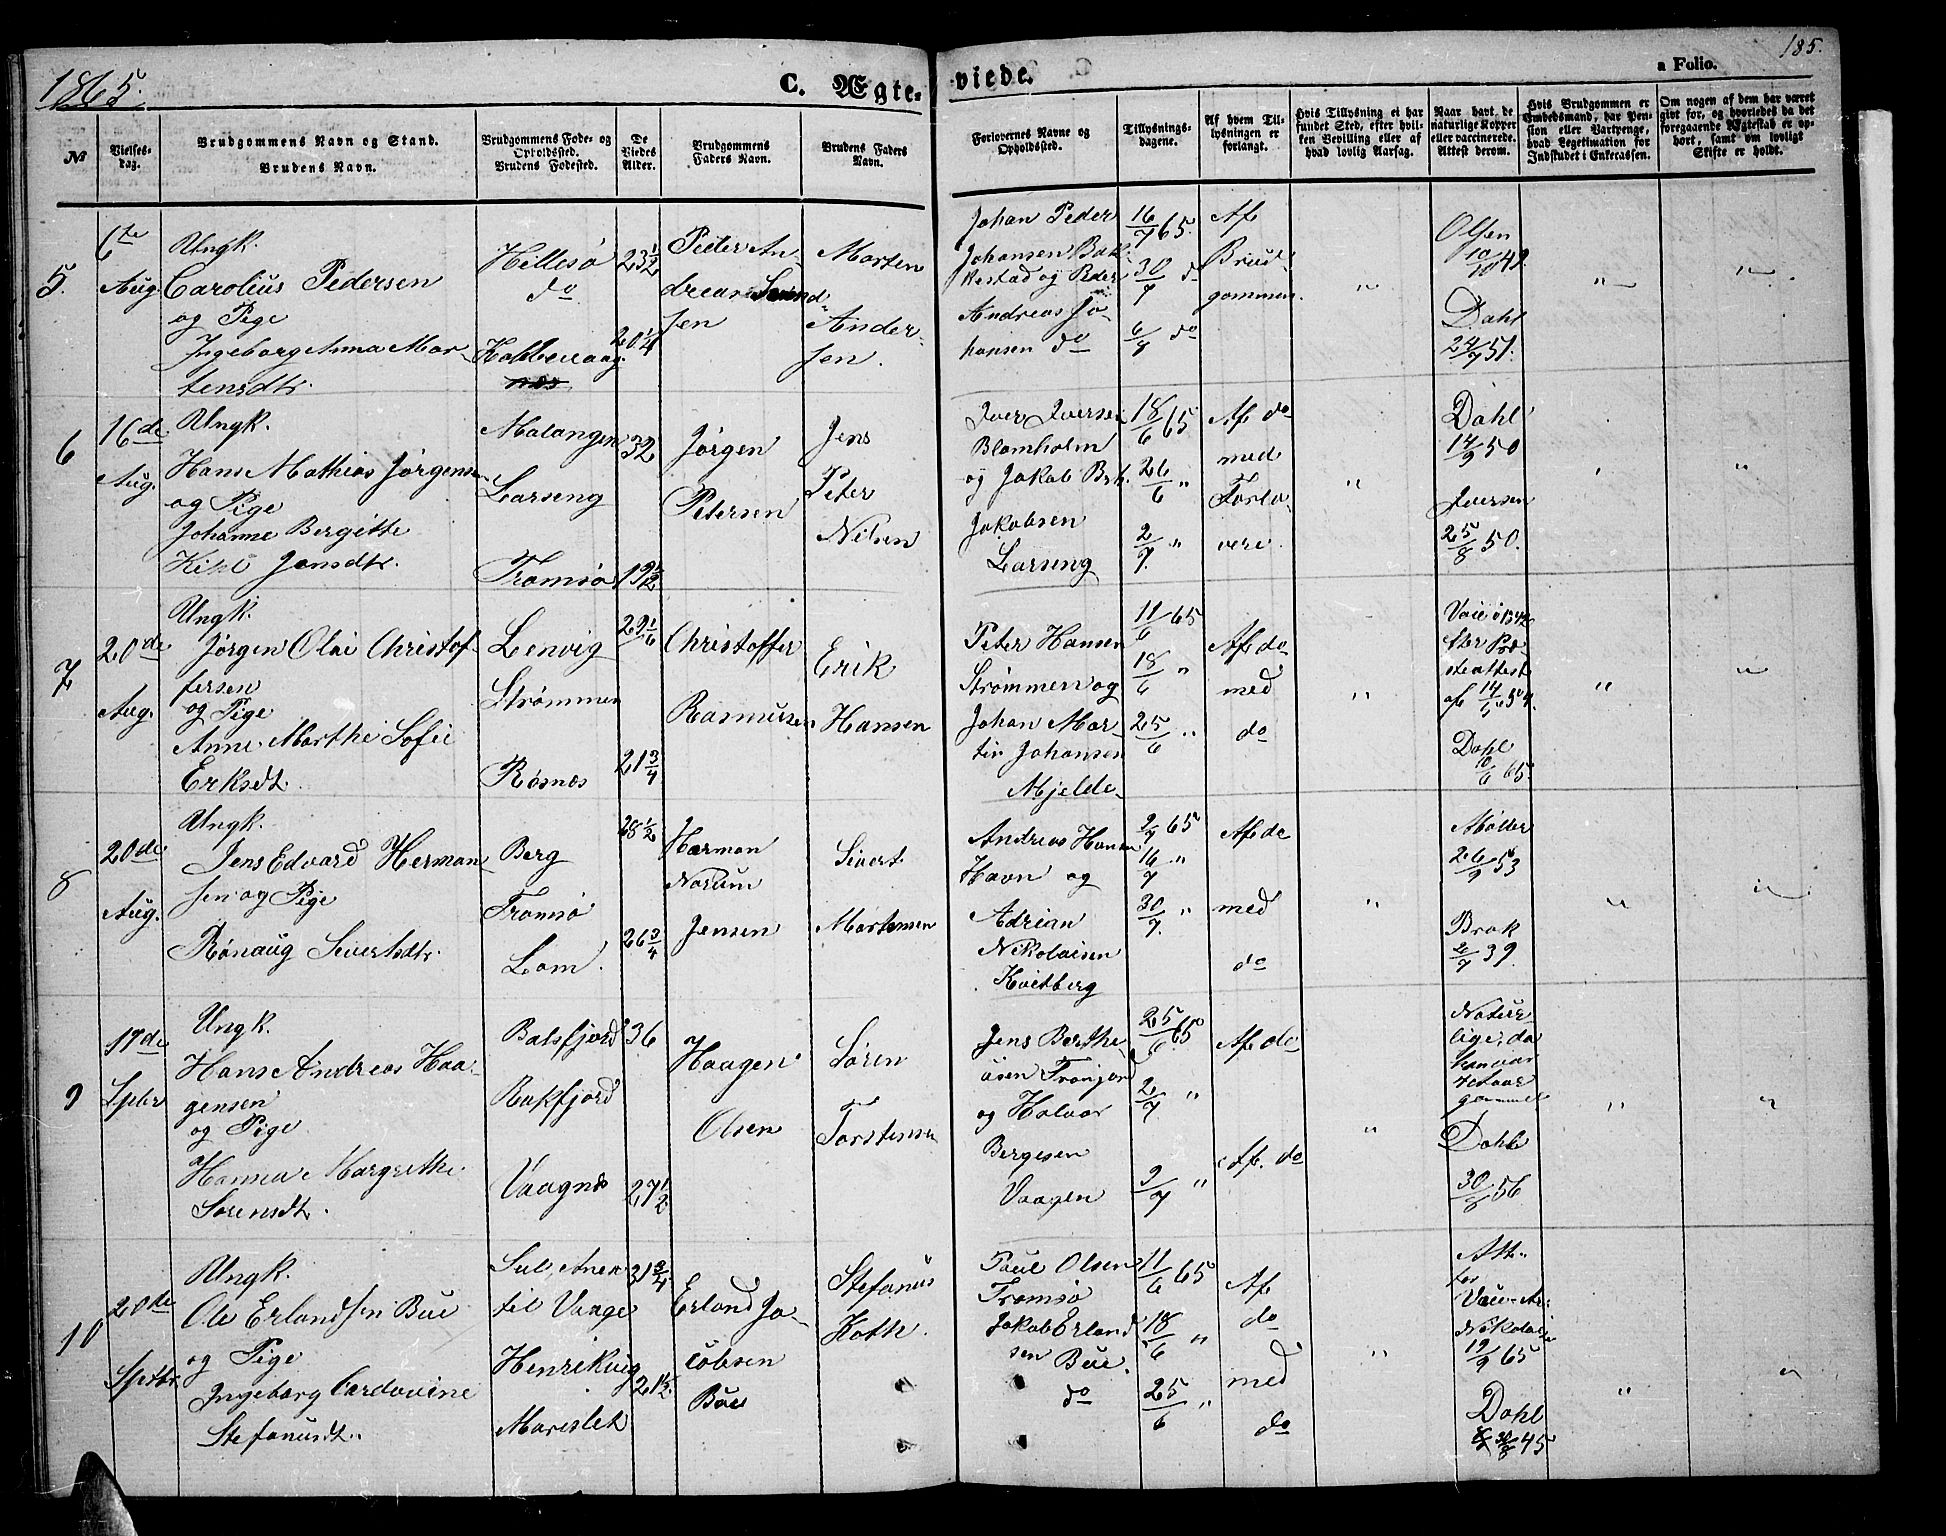 1865.
C. Ægte-
viede.
a Folio.
185.
№
Vielses-
dag.
Brudgommens Navn og Stand.
Brudens Navn.
Brudgommens Føde- og
Opholdssted.
Brudens Fødested.
De
Viedes
Alder.
Brudgommens
Faders Navn.
Brudens Faders
Navn.
Forlovernes Navne og
Opholdssted.
Tillysnings-
dagene.
Af hvem Til-
lysningen er
forlangt.
Hvis Tillysning ei har
fundet Sted, efter hvil-
ken Bevilling eller af
hvad lovlig Aarsag.
Naar havt de
naturlige Kopper
eller vaccinerede.
Attest derom.
Hvis Brudgommen er
Embedsmand, har Pen-
sion eller Vartpenge,
hvad Legitimation for
Indskudet i Enkecassen.
Om nogen af dem har været
gift før, og hvorledes da det
foregaaende Ægteskab er op-
hørt, samt om lovligt
Skifte er holdt.
5.
6te
Aug.
Ungk.
Carolius Pedersen
og Pige
Ingeborg Anna Mor-
tensdtr.
Hillesø
do
Kobbevaag
23½
20¼
Peder An-
dreas
sen
Morten
Ander-
sen.
Johan Peder
Johansen Bak-
kestad og Peder
Andreas Jo-
hansen do
16/7 65.
30/7 do
6/8 do
Af
Brud-
gommen.
"
Olsen
10/10 42
Dahl
24/7 51.
"
"
6
16de
Aug.
Ungk.
Hans Mathias Jørgensen
og Pige
Johanne Bergitte
Kihl Jensdtr.
Malangen
Larseng
Tromsø
32
19½
Jørgen
Petersen
Jens
Peter
Nilsen
Iver Iversen
Blomholm
og Jakob Brh.
Jakobsen
Larseng
18/6 65
26/6 "
2/7 "
Af do
med
Forlo-
vere
"
Dahl
14/9 50
Iversen
25/8 50.
"
"
7
20de
Aug.
Ungk.
Jørgen Olai Christof-
fersen
og Pige
Anne Marthe Sofie
Erksdt.
Lenvig
Strømmen
Røsnes
29 1/6
21¾
Christoffer
Rasmussen
Erik
Hansen
Peter Hansen
Strømmen og
Johan Mor-
tin Johansen
Mjelde
11/6 65
18/6 "
25/6 "
Af do
med
do
"
Dahl
10/6 65.
"
"
8
20de
Aug.
Ungk.
Jens Edvard Herman-
sen og Pige
Rønaug Sivertsdtr.
Berg
Tromsø
Lom.
28½
26¾
Herman
Norum
Jensen
Sivert
Mortensen
Andreas Hansen
Havn og
Adrian
Nikolaisen
Kvitberg
9/7 65
16/7 "
30/7 "
Af do
med
do
"
Møller
26/9 53
Brok
2/7 39
"
"
9
17de
Spbr
Ungk.
Hans Andreas Haa-
gensen
og Pige
Hanna Margrethe
Sørensdt.
Balsfjord
Bakfjord
Vaagnes
36
27½
Haagen
Olsen
Søren
Torstensen
Jens Berthe-
usen Tronjord
og Halvor
Bergesen
Vaagen
25/6 65
2/7 "
9/7 "
Af do
Af. do
"
Natur
lige, da
han var
4 Aar
gammel
Dahl
30/8 56
"
"
10
20de
Spetbr.
Ungk.
Ole Erlandsen Bue
og Pige
Ingeborg Cardovine
Stefanusdt.
til Vange
Henrikvig
Mareslet
31¾
21½
Erland Ja-
cobsen
Bue
Stefanus
Koth.
Paul Olsen
Tromsø
Jakob Erland
sen Bue.
do
11/6 65
18/6 "
25/6 "
Af
do
med
do
"
Att.
for
Nikolai
19/9 65
Dahl
30/8 45
"
"